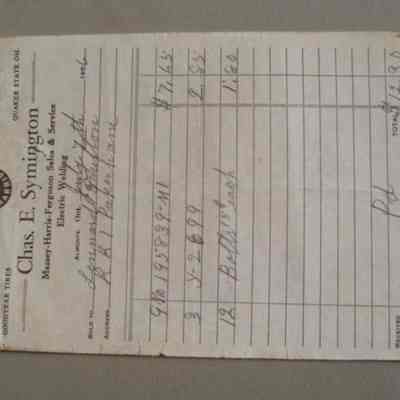 GOODYEAR TIRES QUAKER STATE OIL
Chas. E. Symington
Massey-Harris-Ferguson Sales & Service
Electric Welding
ALMONTE, Ont. July 7th 1956
SOLD TO Lennard
ADDRESS R R 1 Pakenham
9 195839-M1 $7.65
3 Y-2699 2.55
12 Bolts 15¢ each 1.80
Pd
RECEIVED TOTAL